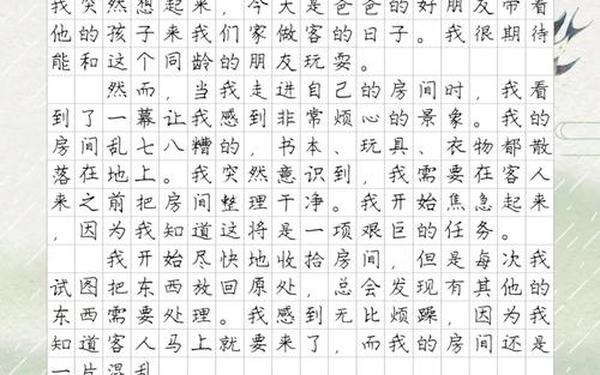 我突然想起来，今天是爸爸的好朋友带着
他的孩子来我们家做客的日子。我很期待
能和这个同龄的朋友玩耍。
然而，当我走进自己的房间时，我看
到了一幕让我感到非常烦心的景象。我的
房间乱七八糟的，书本、玩具、衣物都散
落在地上。我突然意识到，我需要在客人
来之前把房间整理干净。我开始焦急起来
，因为我知道这将是一项艰巨的任务。
我开始尽快地收拾房间，但是每次我
试图把东西放回原处，总会发现有其他的
东西需要处理。我感到无比烦躁，因为我
知道客人马上就要来了，而我的房间还是
一片混乱